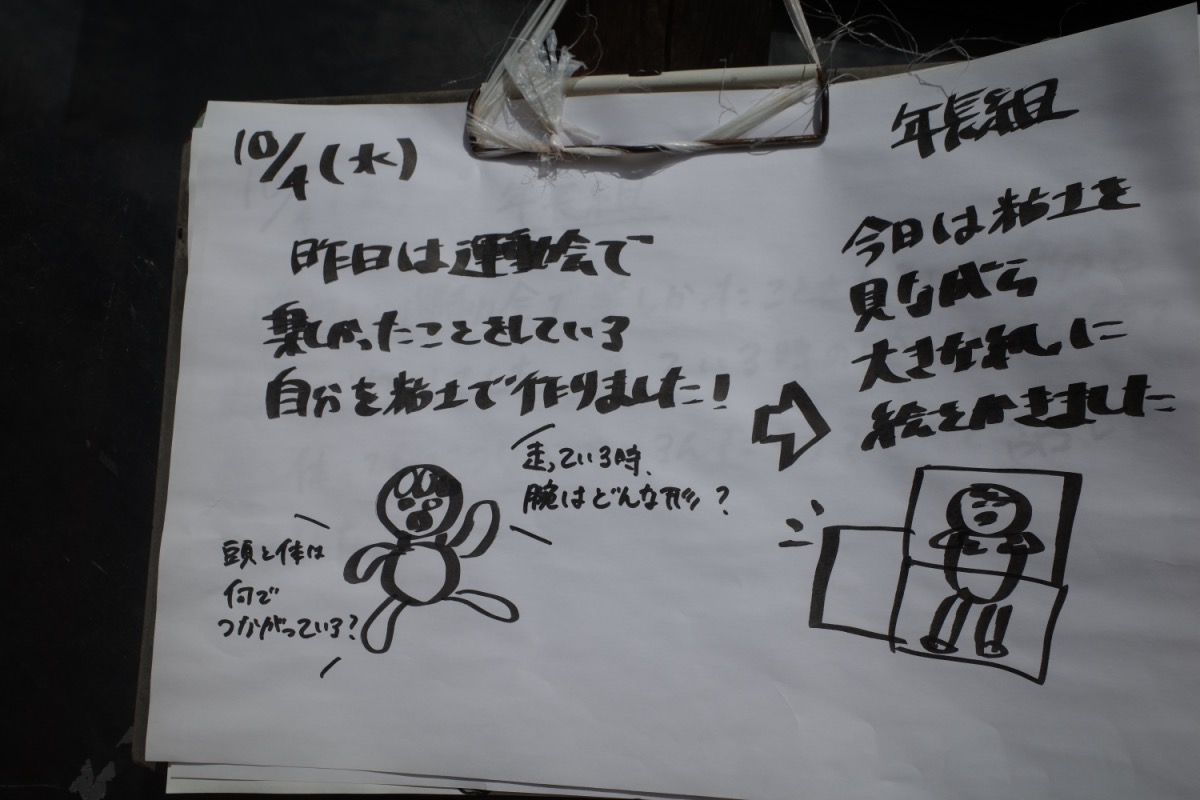 10/4(水)
年長組
昨日は運動会で
楽しかったことをしている
自分を粘土で作りました!
走っている時、
腕はどんな形?
頭と体は
何で
つながっている?
今日は粘土を
見ながら
大きな紙に
絵をかきました